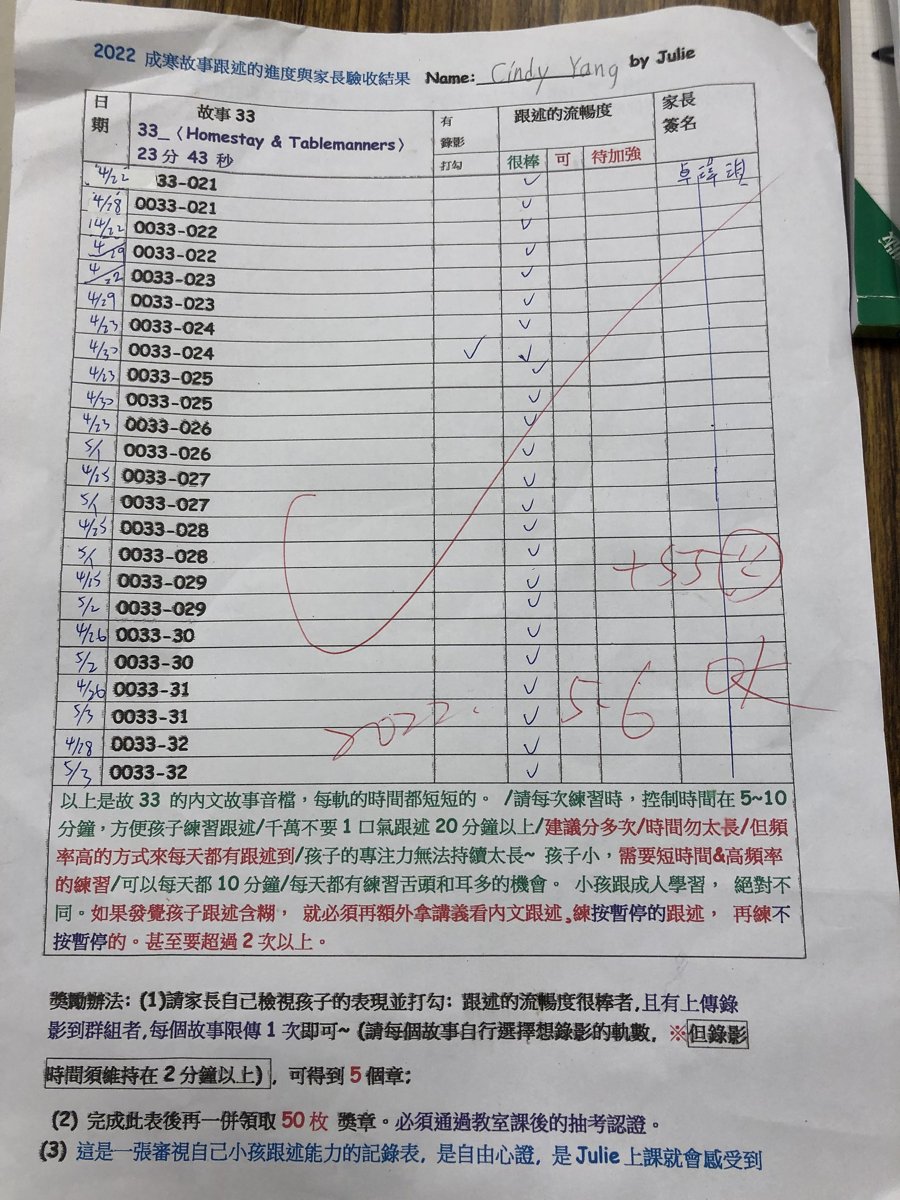 2022 成寒故事跟述的進度與家長驗收結果 Name: Cindy Yang by Julie
日期 故事 33 有錄影打勾 跟述的流暢度 家長簽名
33_〈Homestay & Tablemanners〉
23 分 43 秒 很棒 可 待加強
4/22 33-021 ✓
4/28 0033-021 ✓
4/22 0033-022 ✓
4/29 0033-022 ✓
4/22 0033-023 ✓
4/29 0033-023 ✓
4/23 0033-024 ✓
4/30 0033-024 ✓ ✓
4/23 0033-025 ✓
4/30 0033-025 ✓
4/23 0033-026 ✓
5/1 0033-026 ✓
4/25 0033-027 ✓
5/1 0033-027 ✓
4/25 0033-028 ✓
5/1 0033-028 ✓
4/25 0033-029 ✓
5/2 0033-029 ✓
+55
4/26 0033-30 ✓
5/2 0033-30 ✓
4/26 0033-31 ✓
5/3 0033-31 ✓
2022. 5.6 OK
4/28 0033-32 ✓
5/3 0033-32 ✓
以上是故 33 的內文故事音檔，每軌的時間都短短的。 /請每次練習時，控制時間在 5~10
分鐘，方便孩子練習跟述/千萬不要 1 口氣跟述 20 分鐘以上/建議分多次/時間勿太長/但頻
率高的方式來每天都有跟述到/孩子的專注力無法持續太長~ 孩子小，需要短時間&高頻率
的練習/可以每天都 10 分鐘/每天都有練習舌頭和耳多的機會。 小孩跟成人學習， 絕對不
同。如果發覺孩子跟述含糊， 就必須再額外拿講義看內文跟述,練按暫停的跟述， 再練不
按暫停的。甚至要超過 2 次以上。
獎勵辦法: (1)請家長自己檢視孩子的表現並打勾: 跟述的流暢度很棒者,且有上傳錄
影到群組者,每個故事限傳 1 次即可~ (請每個故事自行選擇想錄影的軌數, ※但錄影
時間須維持在 2 分鐘以上), 可得到 5 個章;
(2) 完成此表後再一併領取 50 枚 獎章。必須通過教室課後的抽考認證。
(3) 這是一張審視自己小孩跟述能力的記錄表, 是自由心證, 是 Julie 上課就會感受到